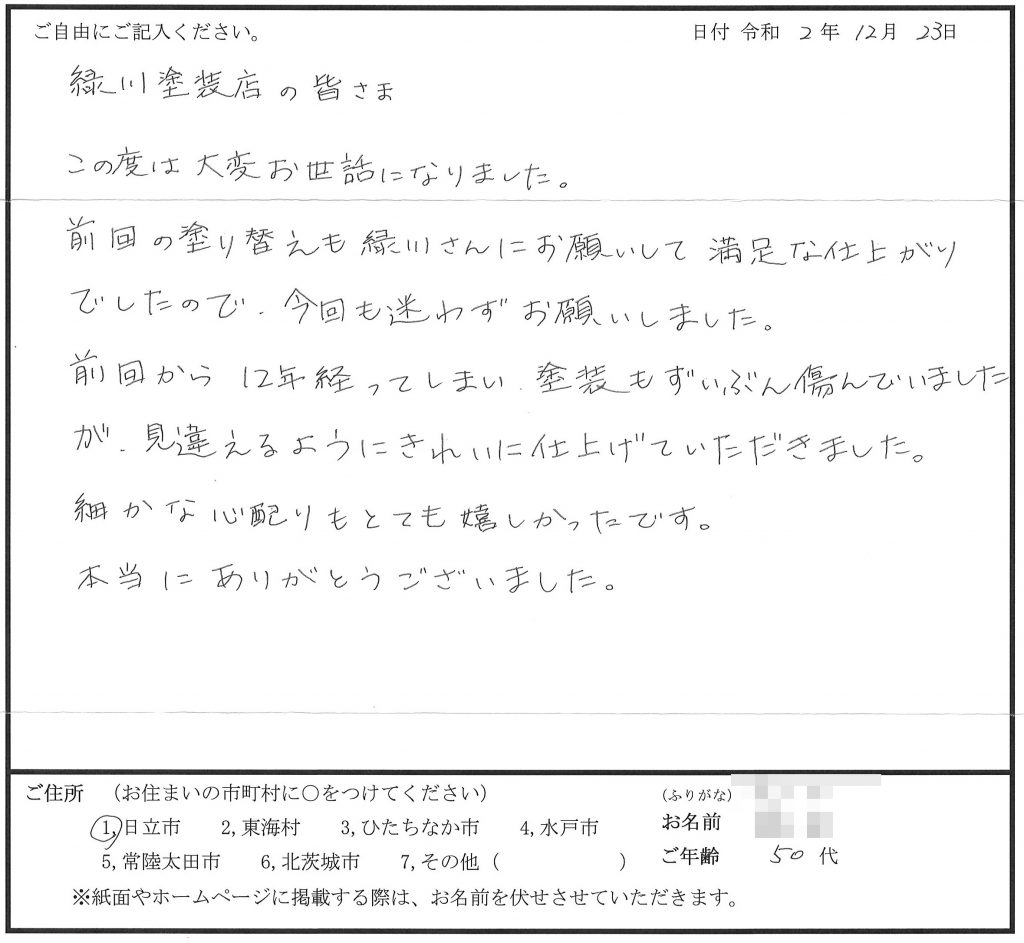 ご自由にご記入ください。 日付 令和 2 年 12月 23日
緑川塗装店の皆さま
この度は大変お世話になりました。
前回の塗り替えも緑川さんにお願いして満足な仕上がり
でしたので、今回も迷わずお願いしました。
前回から12年経ってしまい、塗装もずいぶん傷んでいました
が、見違えるようにきれいに仕上げていただきました。
細かな心配りもとても嬉しかったです。
本当にありがとうございました。
ご住所 （お住まいの市町村に○をつけてください）
(ふりがな)
1,日立市 2,東海村 3,ひたちなか市 4,水戸市
お名前
5,常陸太田市 6,北茨城市 7,その他（ ）
ご年齢 50 代
※紙面やホームページに掲載する際は、お名前を伏せさせていただきます。